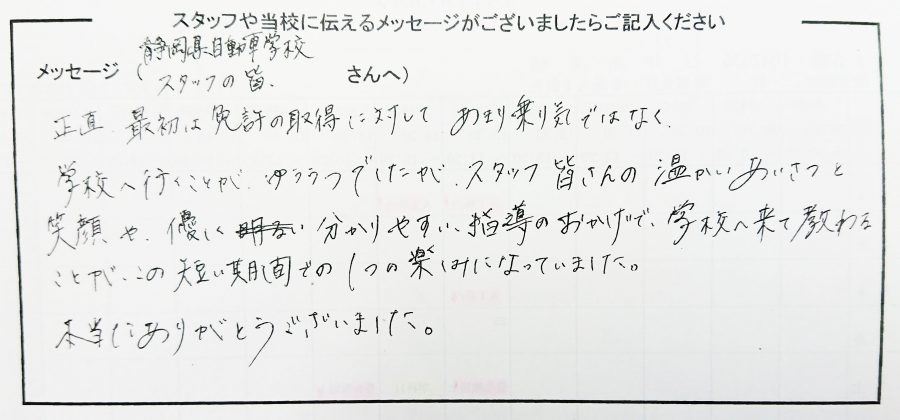 スタッフや当校に伝えるメッセージがございましたらご記入ください
静岡県自動車学校
メッセージ (スタッフの皆、 さんへ)
正直、最初は免許の取得に対して あまり乗り気ではなく、
学校へ行くことが、ゆううつでしたが、スタッフ皆さんの温かいあいさつと
笑顔や、優しく 分かりやすい、指導のおかげで、学校へ来て教わる
ことが、この短い期間での1つの楽しみになっていました。
本当にありがとうございました。